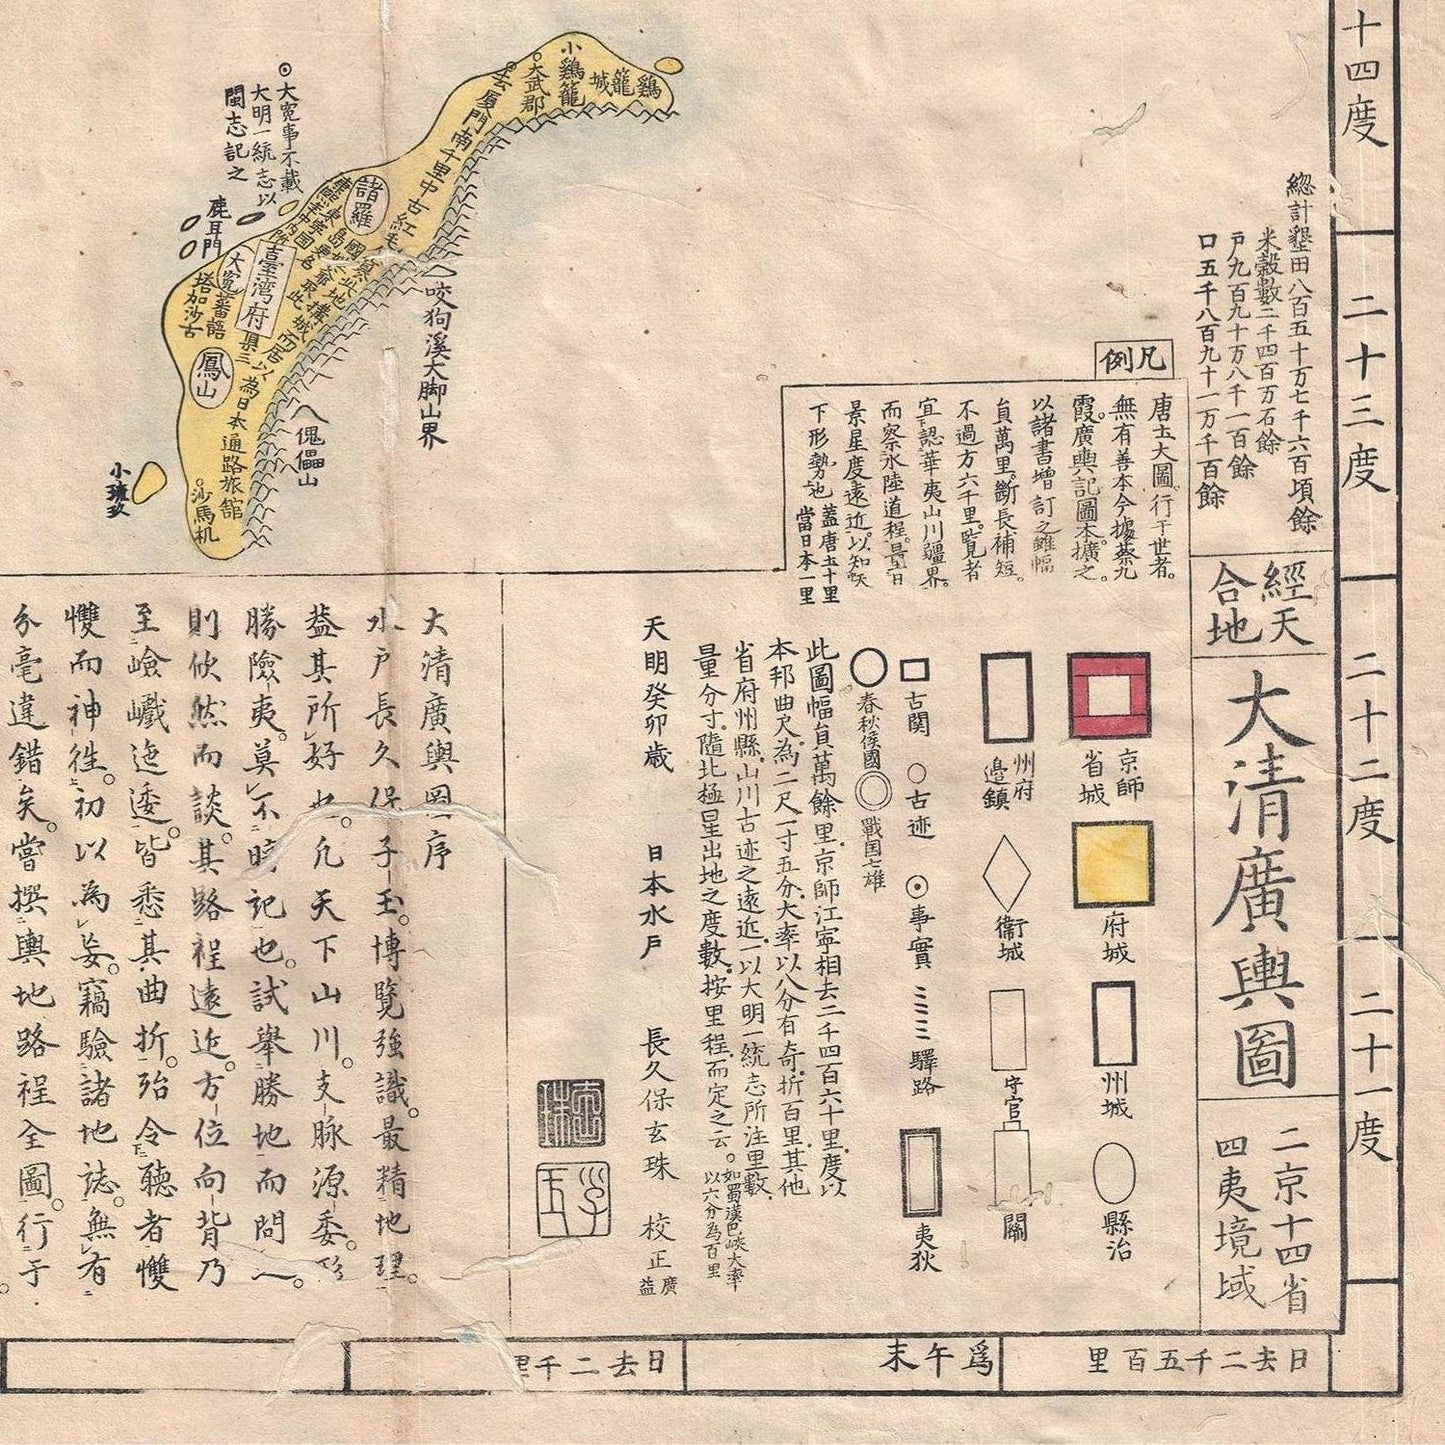 十四度
二十三度
二十二度
二十一度
總計墾田八百五十万七千六百頃餘
米穀數二千四百万石餘
戸九百九十万八千一百餘
口五千八百九十一万千百餘
經天
合地
大清廣輿圖
二京十四省
四夷境域
凡例
唐土大圖。行于世者。
無有善本今據蔡九
霞。廣輿記圖本擴之。
以諸書増訂之雖幅
員萬里。斷長補短。
不過方六千里。覧者
宜認華夷山川疆界。
而察水陸道程。量日
景星度遠近。以知天
下形勢也
蓋唐土十里
當日本一里
京師
省城
府城
州城
縣治
州府
邉鎮
衞城
守官
關
古関
古迹
事實
驛路
夷狄
春秋侯國
戰国七雄
此圖幅員萬餘里。京師江寧相去二千四百六十里。度以
本邦曲尺。為二尺一寸五分。大率以八分有奇。折百里。其他
省府州縣。山川古迹之遠近。一以大明一統志所注里數。
量分寸。隨北極星出地之度數。按里程。而定之云。
如蜀漢巴峽大率
以六分為百里
天明癸卯歳
日本水戸
長久保玄珠
校正
廣益
大清廣輿圖序
水戸長久保子玉。博覽強識。最精地理。
益其所好也。凢天下山川。支脉源委。
勝險夷。莫不暗記也。試舉勝地而問
則佽然而談。其路程遠近。方位向背乃
至嶮巇迤逶。皆悉其曲折。殆令聽者
戄而神徃。初以為妄。竊驗諸地誌。無有
分毫違錯矣。嘗撰輿地路程全圖。行于
雞籠城
小雞籠
大武郡
去厦門南千里中古紅毛
諸羅
臺湾府
縣三
大寃
鳳山
為日本通路旅舘
沙馬机
蕃語
塔加沙古
鹿耳門
小琉玖
大寃事不載
大明一統志以
閩志記之
咬狗溪大脚山界
傀儡山
日去二千五百里
爲午末
日去二千里